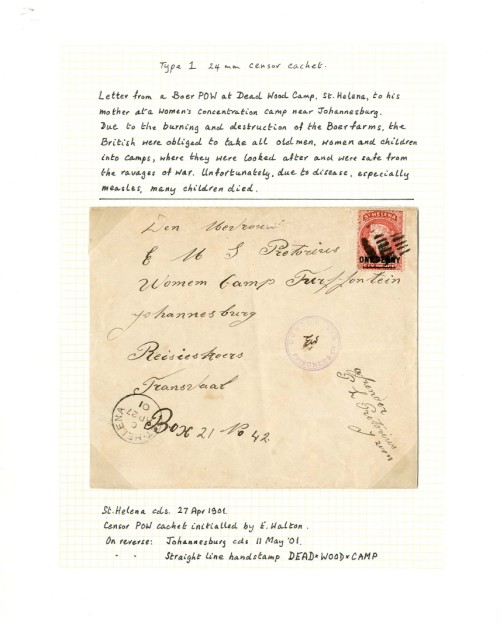 Type 1 24 mm censor cachet.
Letter from a Boer POW at Dead Wood Camp, St. Helena, to his
mother at a Women's concentration camp near Johannesburg.
Due to the burning and destruction of the Boer farms, the
British were obliged to take all old men, women and children
into camps, where they were looked after and were safe from
the ravages of war. Unfortunately, due to disease, especially
measles, many children died.
Den
E M S Pretorius
Women Camp Turffontein
Johannesburg
Transvaal
Box 21 No 42
ST HELENA
ONE PENNY
PRISONERS
ST. HELENA
C
AP 27
01
St. Helena cds. 27 Apr 1901.
Censor POW cachet initialled by E. Walton.
On reverse: Johannesburg cds 11 May '01.
" " Straight line handstamp DEAD*WOOD*CAMP